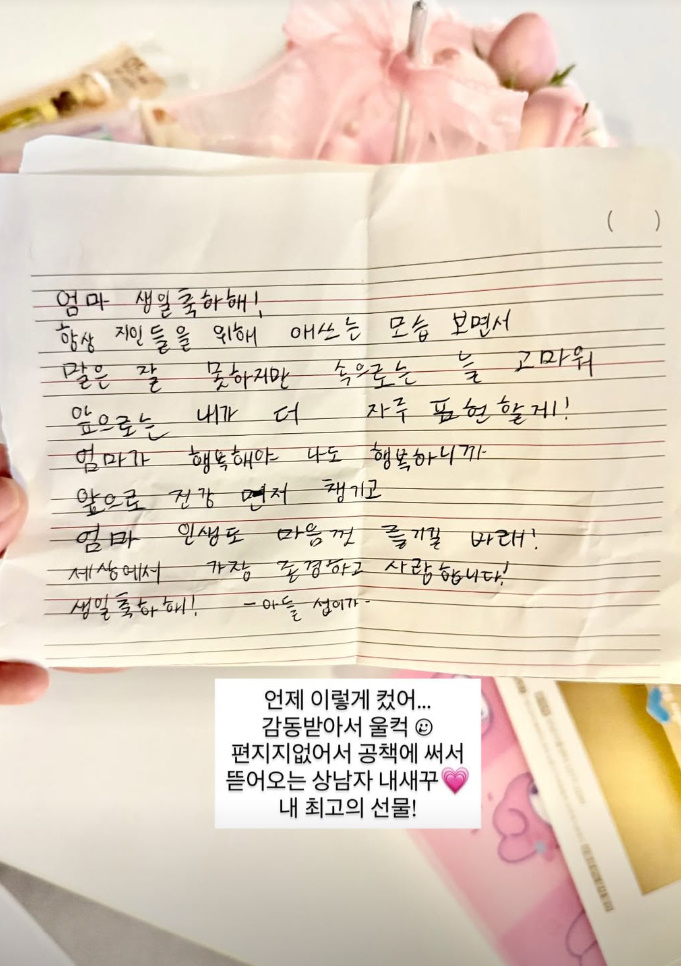 ( )
엄마 생일축하해!
항상 지인들을 위해 애쓰는 모습 보면서
말은 잘 못하지만 속으로는 늘 고마워
앞으로는 내가 더 자주 표현할게!
엄마가 행복해야 나도 행복하니까
앞으로 건강 면저 챙기고
엄마 인생도 마음껏 즐기길 바래!
세상에서 가장 존경하고 사랑합니다!
생일축하해! -아들 섭이가-
언제 이렇게 컸어...
감동받아서 울컥
편지지없어서 공책에 써서
뜯어오는 상남자 내새꾸💗
내 최고의 선물!